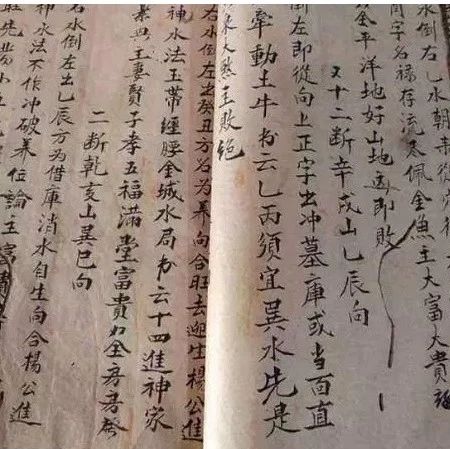 水倒右乙水朝来從
字名禄存流尽佩金魚主大富大貴
金平洋地好山地即敗
又十二断辛戌山乙辰向
倒左即從向上正字出冲墓庫或当面直
牽動土牛书云乙丙須宜巽水先是
来大煞主敗絶
右水倒左出癸丑方名为养向合旺去迎生楊公進
神水法玉帶經腰金城水局书云十四進神家
業興王妻賢子孝五福满堂富貴力全房房發
二断乾亥山巽巳向
右水倒左出乙辰方为借庫消水自生向合楊公進
神水法不作冲破养位論主富